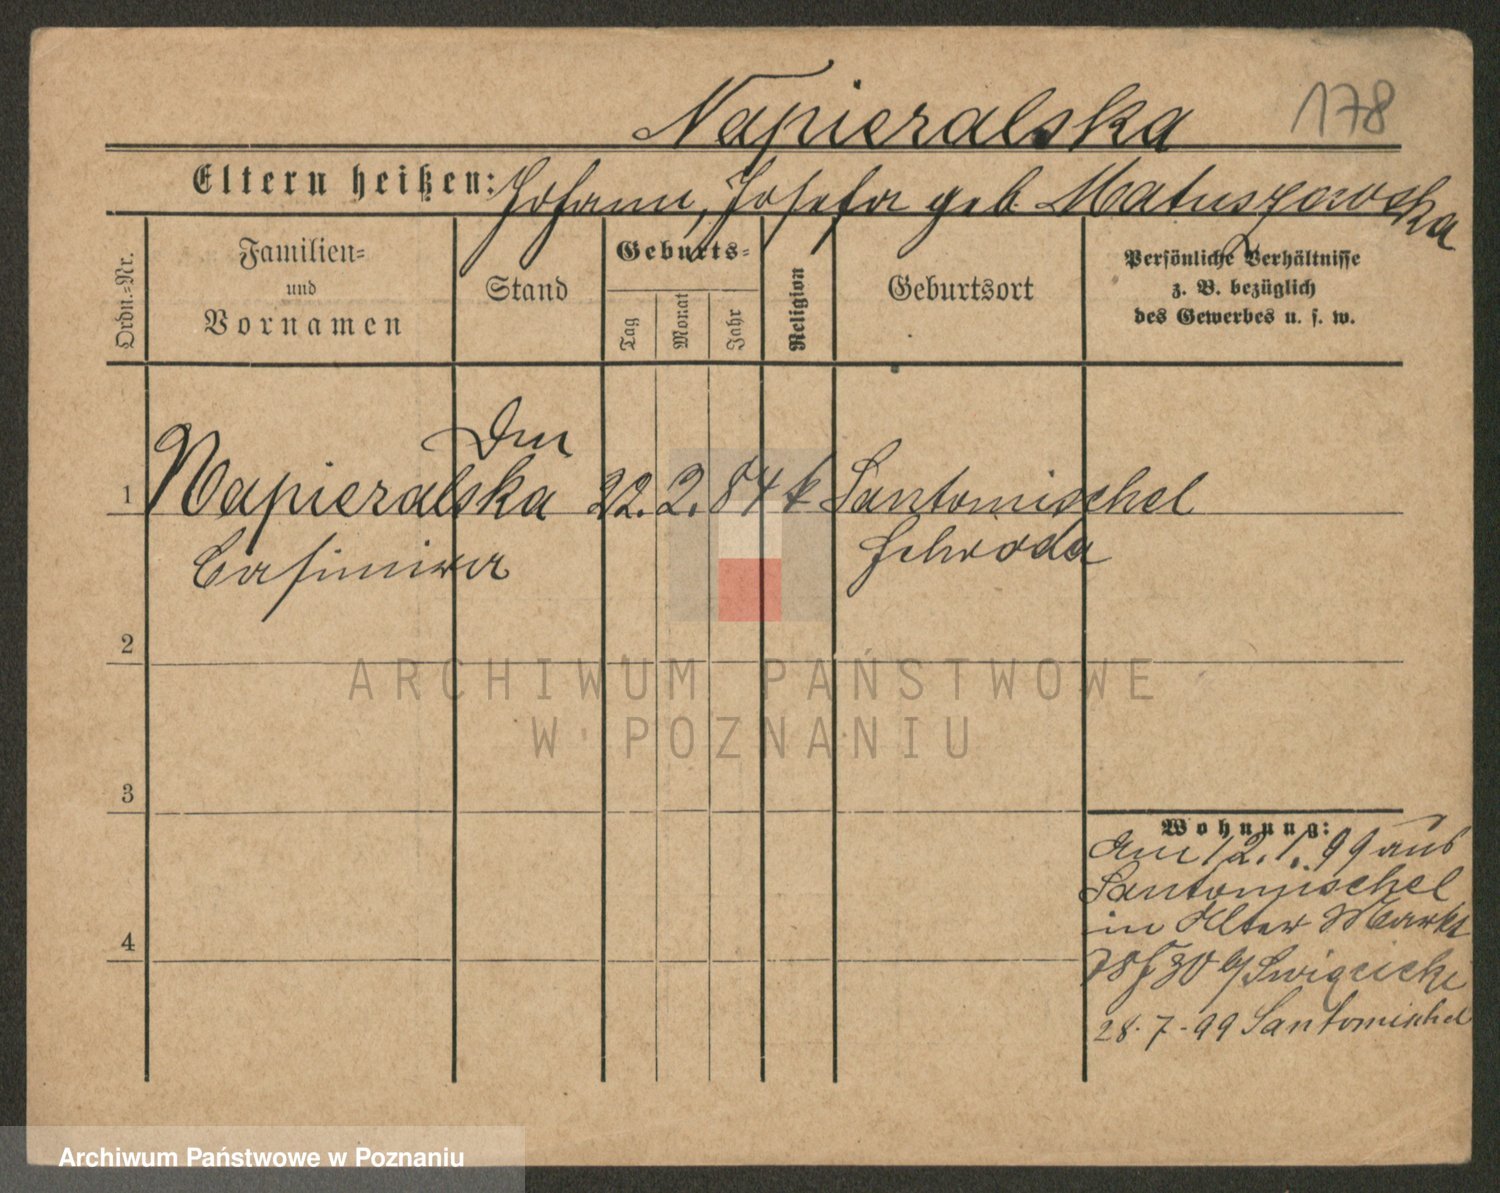 Napieralska 178
Eltern heißen: Johann, Josefa geb Matuszewska
Ordn.-Nr.
Familien-
und
Vornamen
Stand
Geburts-
Tag
Monat
Jahr
Religion
Geburtsort
Persönliche Verhältnisse
z. B. bezüglich
des Gewerbes u. s. w.
1 Napieralska 22. 2. 84 k Santomischel
Casimira Schroda
2
3
4
Wohnung:
am 12. 1. 99 aus
Santomischel
in Alter Markt
b/ Swięcicki
28. 7. 99 Santomischel
ARCHIWUM PAŃSTWOWE
W POZNANIU
Archiwum Państwowe w Poznaniu